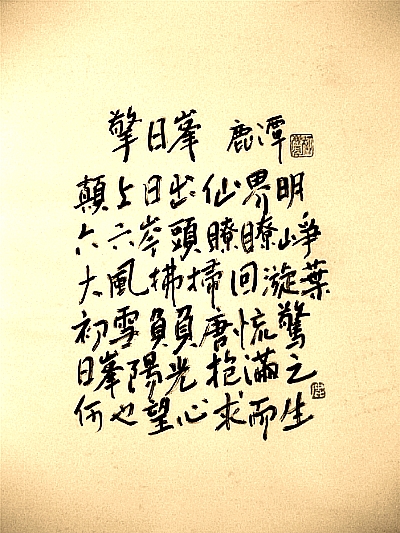 擎日峯 鹿潭
顛上日出仙界明
六六岑頭瞭瞭崢
大風拂掃回漩葉
初雪負負唐慌驚
日峯陽光抱滿之
何也望心求而生